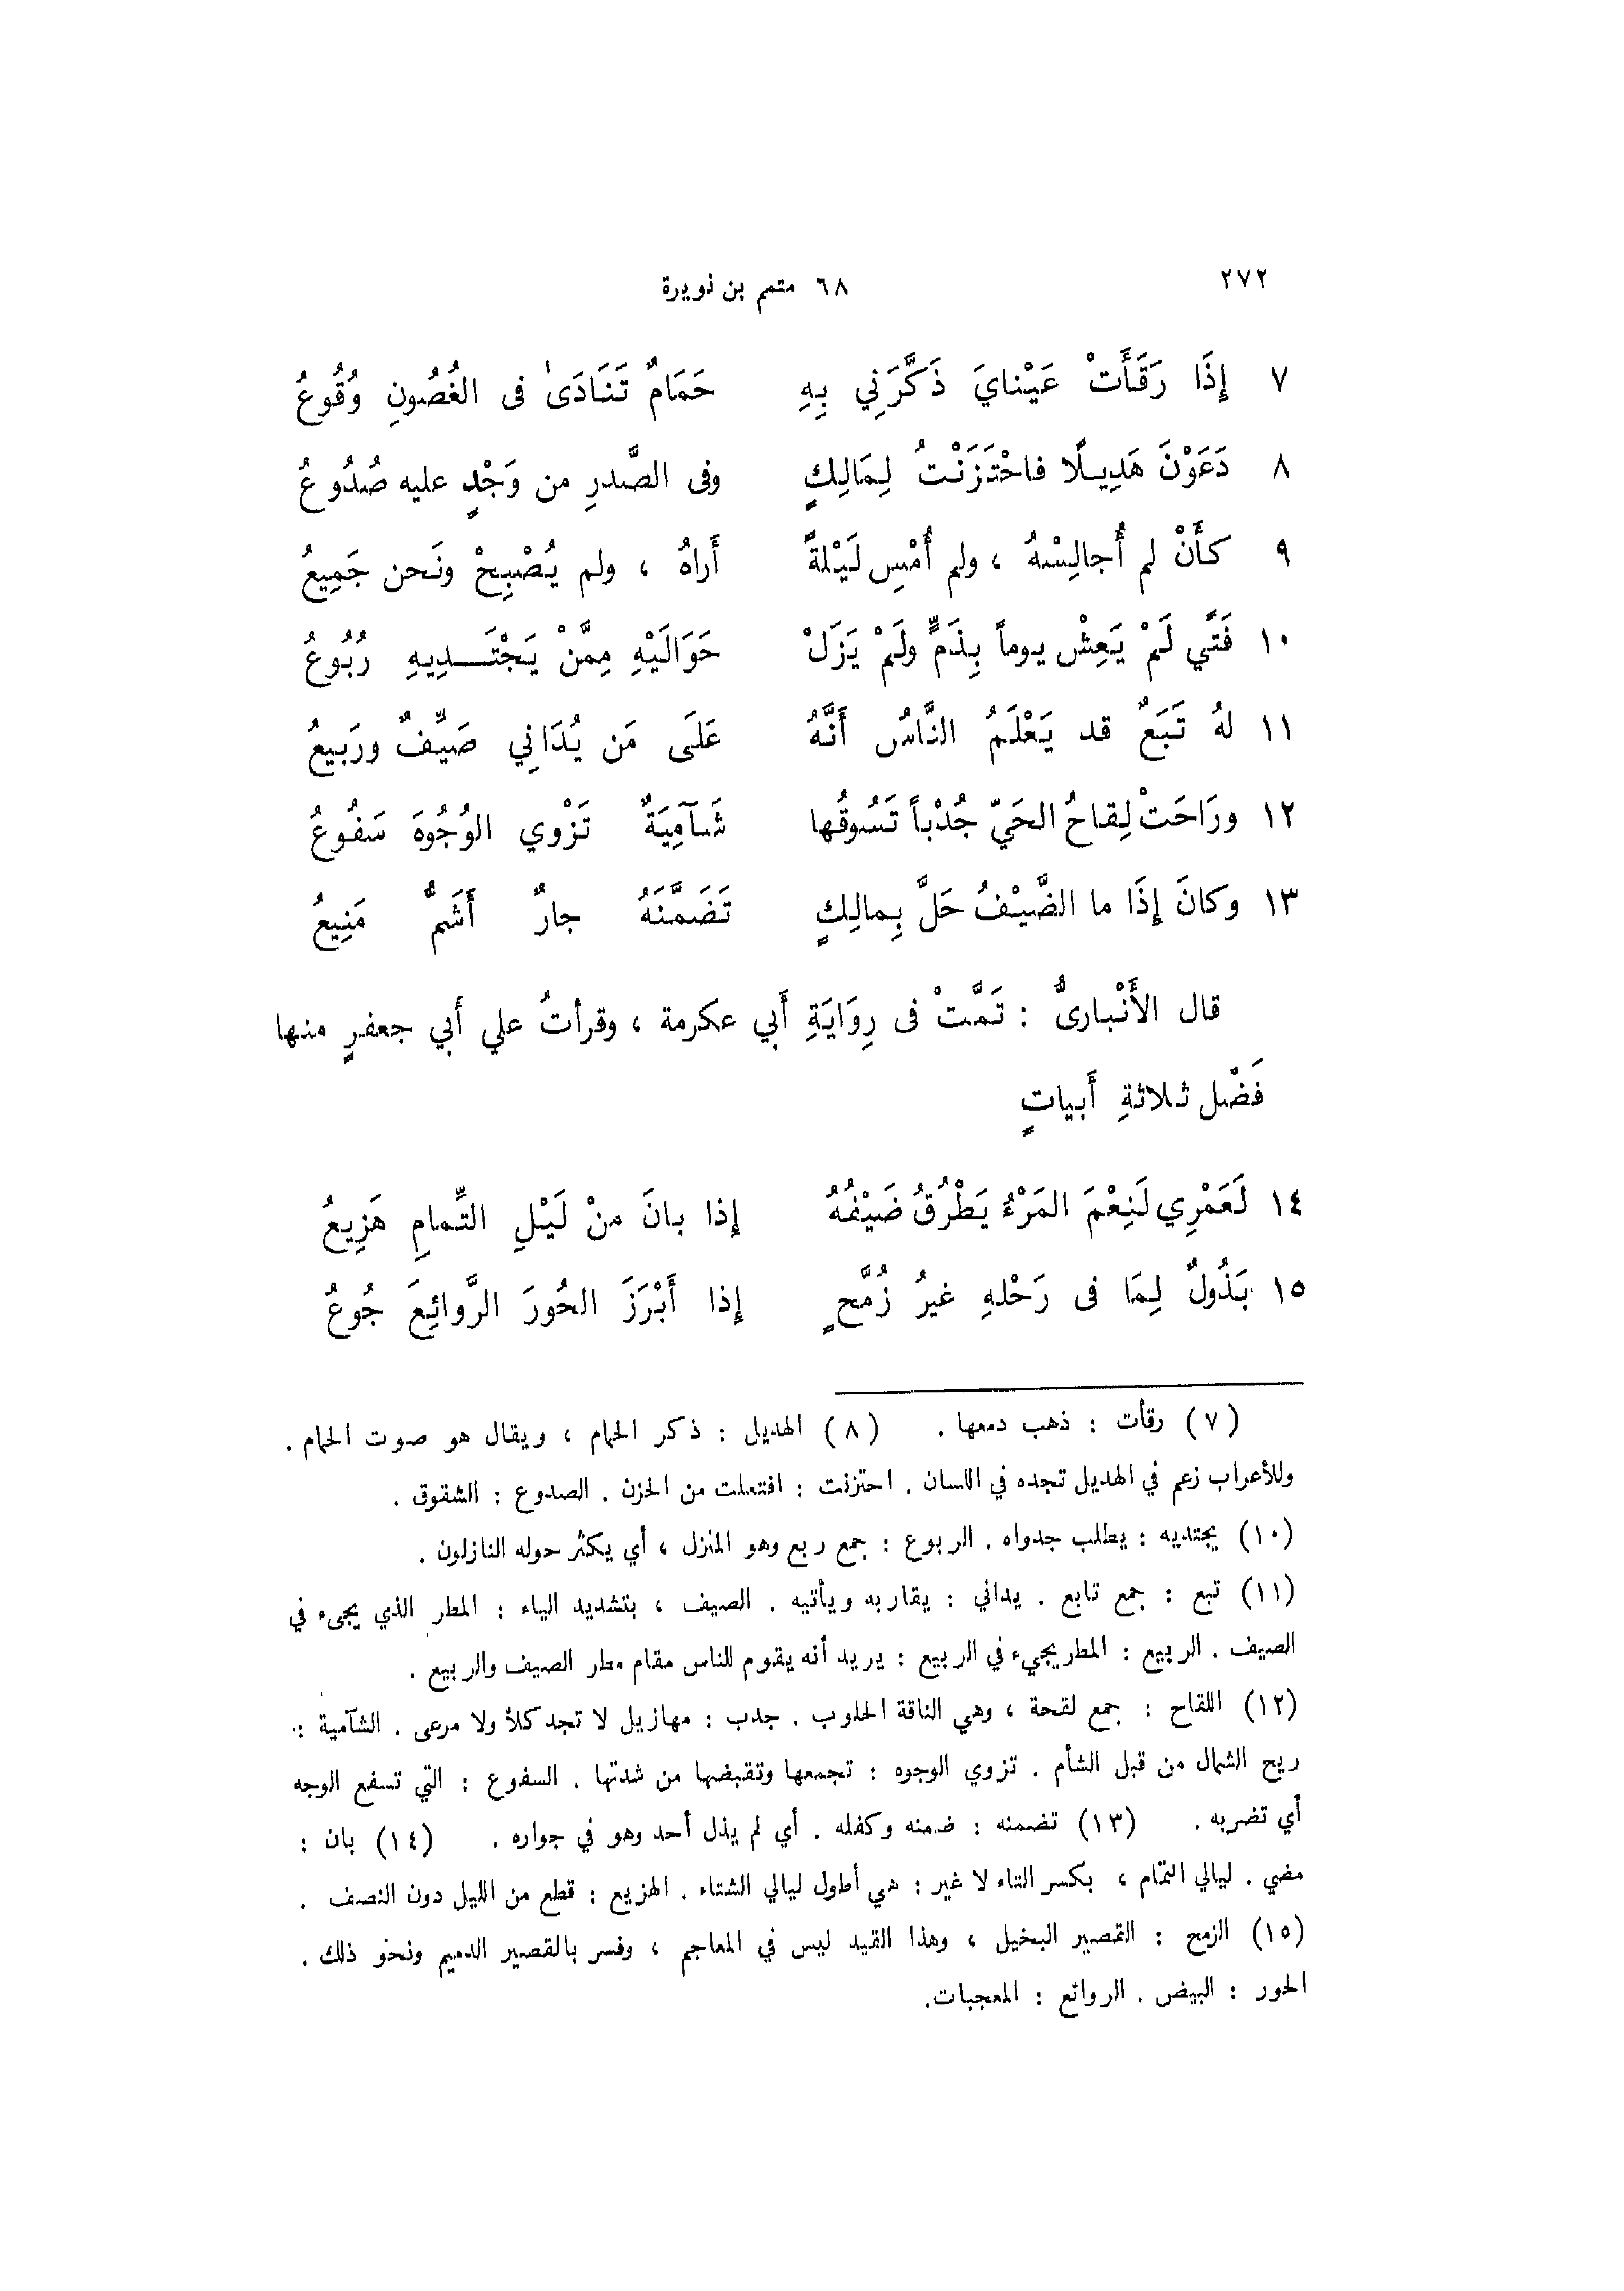 ٢٧٢
٦٨ متمم بن نويرة
٧ إِذَا رَقَأَتْ عَيْنايَ ذَكَّرَنِي بِهِ حَمَامٌ تَنَادَىٰ فى الغُصُونِ وُقُوعُ
٨ دَعَوْنَ هَدِيلًا فاحْتَزَنْتُ لِمَالِكٍ وفى الصَّدرِ من وَجْدٍ عليه صُدُوعُ
٩ كأَنْ لم أُجالِسْهُ ، ولم أُمْسِ لَيْلةً أَراهُ ، ولم يُصْبِحْ ونَحن جَمِيعُ
١٠ فَتًي لَمْ يَعِشْ يوماً بِذَمٍّ ولَمْ يَزَلْ حَوَالَيْهِ مِمَّنْ يَجْتَدِيهِ رُبُوعُ
١١ لهُ تَبَعٌ قد يَعْلَمُ النَّاسُ أَنَّهُ عَلَى مَن يُدَانِي صَيِّفٌ ورَبيعُ
١٢ ورَاحَتْ لِقاحُ الحَيّ جُدْباً تَسُوقُها شَآمِيَةٌ تَزْوِي الوُجُوهَ سَفُوعُ
١٣ وكانَ إِذَا ما الضَّيْفُ حَلَّ بِمالِكٍ تَضَمَّنَهُ جارٌ أَشَمٌّ مَنِيعُ
قال الأَنْبارىُّ : تَمَّتْ فى رِوَايَةِ أَبي عكرمة ، وقرأتُ علي أَبي جعفرٍ منها
فَضْل ثلاثةِ أَبياتٍ
١٤ لَعَمْرِي لَنِعْمَ المَرْءُ يَطْرُقُ ضَيْفُهُ إِذا بانَ منْ لَيْلِ التِّمامِ هَزِيعُ
١٥ بَذُولٌ لِمَا فى رَحْلهِ غيرُ زُمَّحٍ إِذا أَبْرَزَ الحُورَ الرَّوائِعَ جُوعُ
(٧) رقأت : ذهب دمعها . (٨) الهديل : ذكر الحمام ، ويقال هو صوت الحمام .
وللأعراب زعم في الهديل تجده في اللسان . احتزنت : افتعلت من الحزن . الصدوع : الشقوق .
(١٠) يجتديه : يطلب جدواه . الربوع : جمع ربع وهو المنزل ، أي يكثر حوله النازلون .
(١١) تبع : جمع تابع . يداني : يقاربه ويأتيه . الصيف ، بتشديد الياء : المطر الذي يجىء في
الصيف . الربيع : المطر يجيء في الربيع : يريد أنه يقوم للناس مقام مطر الصيف والربيع .
(١٢) اللقاح : جمع لقحة ، وهي الناقة الحلوب . جدب : مهازيل لا تجد كلأ ولا مرعى . الشآمية :
ريح الشمال من قبل الشأم . تزوي الوجوه : تجمعها وتقبضها من شدتها . السفوع : التي تسفع الوجه
أي تضربه . (١٣) تضمنه : ضمنه وكفله . أي لم يذل أحد وهو في جواره . (١٤) بان :
مضي . ليالي التمام ، بكسر التاء لا غير : هي أطول ليالي الشتاء . الهزيع : قطع من الليل دون النصف .
(١٥) الزمح : القصير البخيل ، وهذا القيد ليس في المعاجم ، وفسر بالقصير الدميم ونحو ذلك .
الحور : البيض . الروائع : المعجبات.